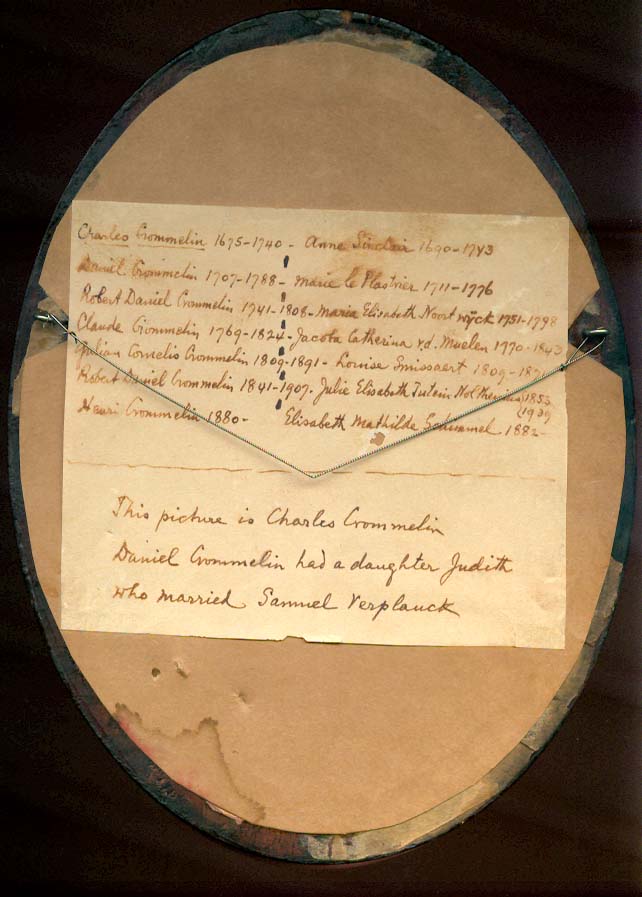 Charles Crommelin 1675-1740 - Anne Sinclair 1690-1743
Daniel Crommelin 1707-1788 - Marie le Plastrier 1711-1776
Robert Daniel Crommelin 1741-1808 - Maria Elisabeth Noortwijck 1751-1798
Claude Crommelin 1769-1824 - Jacoba Catharina v.d. Muelen 1770-1843
Gulian Cornelis Crommelin 1809-1891 - Louise Smissaert 1809-
Robert Daniel Crommelin 1841-1907. Julie Elisabeth Tutein Nolthenius 1853
1939
Henri Crommelin 1880- Elisabeth Mathilde Schimmel 1882-
This picture is Charles Crommelin
Daniel Crommelin had a daughter Judith
who married Samuel Verplanck